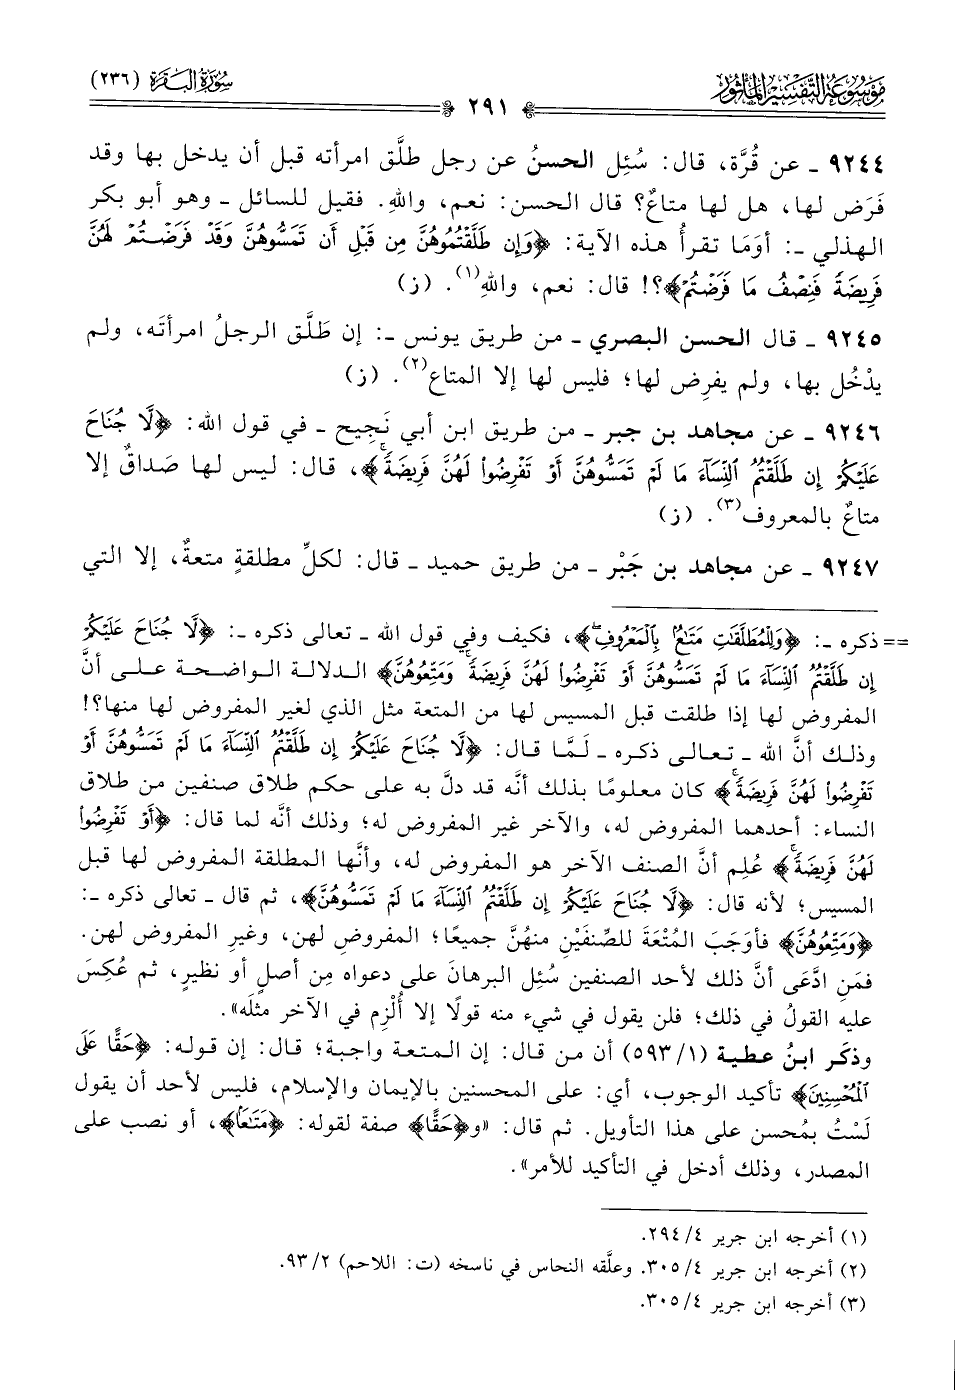 موسوعة التفسير المأثور
سورة البقرة (٢٣٦)
٢٩١
٩٢٤٤ ـ عن قُرَّة، قال: سُئِل الحسنُ عن رجل طلَّق امرأته قبل أن يدخل بها وقد
فَرَض لها، هل لها متاعٌ؟ قال الحسن: نعم، واللهِ. فقيل للسائل ـ وهو أبو بكر
الهذلي ـ: أوَمَا تقرأُ هذه الآية: ﴿وَإِن طَلَّقْتُمُوهُنَّ مِن قَبْلِ أَن تَمَسُّوهُنَّ وَقَدْ فَرَضْتُمْ لَهُنَّ
فَرِيضَةً فَنِصْفُ مَا فَرَضْتُمْ﴾؟! قال: نعم، واللهِ(١). (ز)
٩٢٤٥ ـ قال الحسن البصري ـ من طريق يونس ـ: إن طَلَّق الرجلُ امرأتَه، ولم
يدْخُل بها، ولم يفرِض لها؛ فليس لها إلا المتاع(٢). (ز)
٩٢٤٦ ـ عن مجاهد بن جبر ـ من طريق ابن أبي نَجِيح ـ في قول الله: ﴿لَّا جُنَاحَ
عَلَيْكُمْ إِن طَلَّقْتُمُ ٱلنِّسَآءَ مَا لَمْ تَمَسُّوهُنَّ أَوْ تَفْرِضُوا۟ لَهُنَّ فَرِيضَةً﴾، قال: ليس لها صَداقٌ إلا
متاعٌ بالمعروف(٣). (ز)
٩٢٤٧ ـ عن مجاهد بن جَبْر ـ من طريق حميد ـ قال: لكلِّ مطلقةٍ متعةٌ، إلا التي
== ذكره ـ: ﴿وَلِلْمُطَلَّقَٰتِ مَتَٰعٌۢ بِٱلْمَعْرُوفِ﴾، فكيف وفي قول الله ـ تعالى ذكره ـ: ﴿لَّا جُنَاحَ عَلَيْكُمْ
إِن طَلَّقْتُمُ ٱلنِّسَآءَ مَا لَمْ تَمَسُّوهُنَّ أَوْ تَفْرِضُوا۟ لَهُنَّ فَرِيضَةً وَمَتِّعُوهُنَّ﴾ الدلالة الواضحة على أنَّ
المفروض لها إذا طلقت قبل المسيس لها من المتعة مثل الذي لغير المفروض لها منها؟!
وذلك أنَّ الله ـ تعالى ذكره ـ لَمَّا قال: ﴿لَّا جُنَاحَ عَلَيْكُمْ إِن طَلَّقْتُمُ ٱلنِّسَآءَ مَا لَمْ تَمَسُّوهُنَّ أَوْ
تَفْرِضُوا۟ لَهُنَّ فَرِيضَةً﴾ كان معلومًا بذلك أنَّه قد دلَّ به على حكم طلاق صنفين من طلاق
النساء: أحدهما المفروض له، والآخر غير المفروض له؛ وذلك أنَّه لما قال: ﴿أَوْ تَفْرِضُوا۟
لَهُنَّ فَرِيضَةً﴾ عُلِم أنَّ الصنف الآخر هو المفروض له، وأنَّها المطلقة المفروض لها قبل
المسيس؛ لأنه قال: ﴿لَّا جُنَاحَ عَلَيْكُمْ إِن طَلَّقْتُمُ ٱلنِّسَآءَ مَا لَمْ تَمَسُّوهُنَّ﴾، ثم قال ـ تعالى ذكره ـ:
﴿وَمَتِّعُوهُنَّ﴾ فأوَجَبَ المُتْعَةَ للصِّنفَيْنِ منهُنَّ جميعًا؛ المفروضِ لهن، وغيرِ المفروض لهن.
فمَنِ ادَّعَى أنَّ ذلك لأحد الصنفين سُئِل البرهانَ على دعواه مِن أصلٍ أو نظيرٍ، ثم عُكِسَ
عليه القولُ في ذلك؛ فلن يقول في شيء منه قولًا إلا أُلْزِم في الآخر مثلَه».
وذكَر ابنُ عطية (١/ ٥٩٣) أن من قال: إن المتعة واجبة؛ قال: إن قوله: ﴿حَقًّا عَلَى
ٱلْمُحْسِنِينَ﴾ تأكيد الوجوب، أي: على المحسنين بالإيمان والإسلام، فليس لأحد أن يقول
لَسْتُ بمُحسن على هذا التأويل. ثم قال: «و﴿حَقًّا﴾ صفة لقوله: ﴿مَتَٰعًا﴾، أو نصب على
المصدر، وذلك أدخل في التأكيد للأمر».
(١) أخرجه ابن جرير ٤/ ٢٩٤.
(٢) أخرجه ابن جرير ٤/ ٣٠٥. وعلَّقه النحاس في ناسخه (ت: اللاحم) ٢/ ٩٣.
(٣) أخرجه ابن جرير ٤/ ٣٠٥.